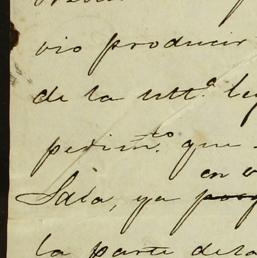 vio producir
de la ult.ª ley
pedim.to que
en v
Sala, ya porq
la parte dela